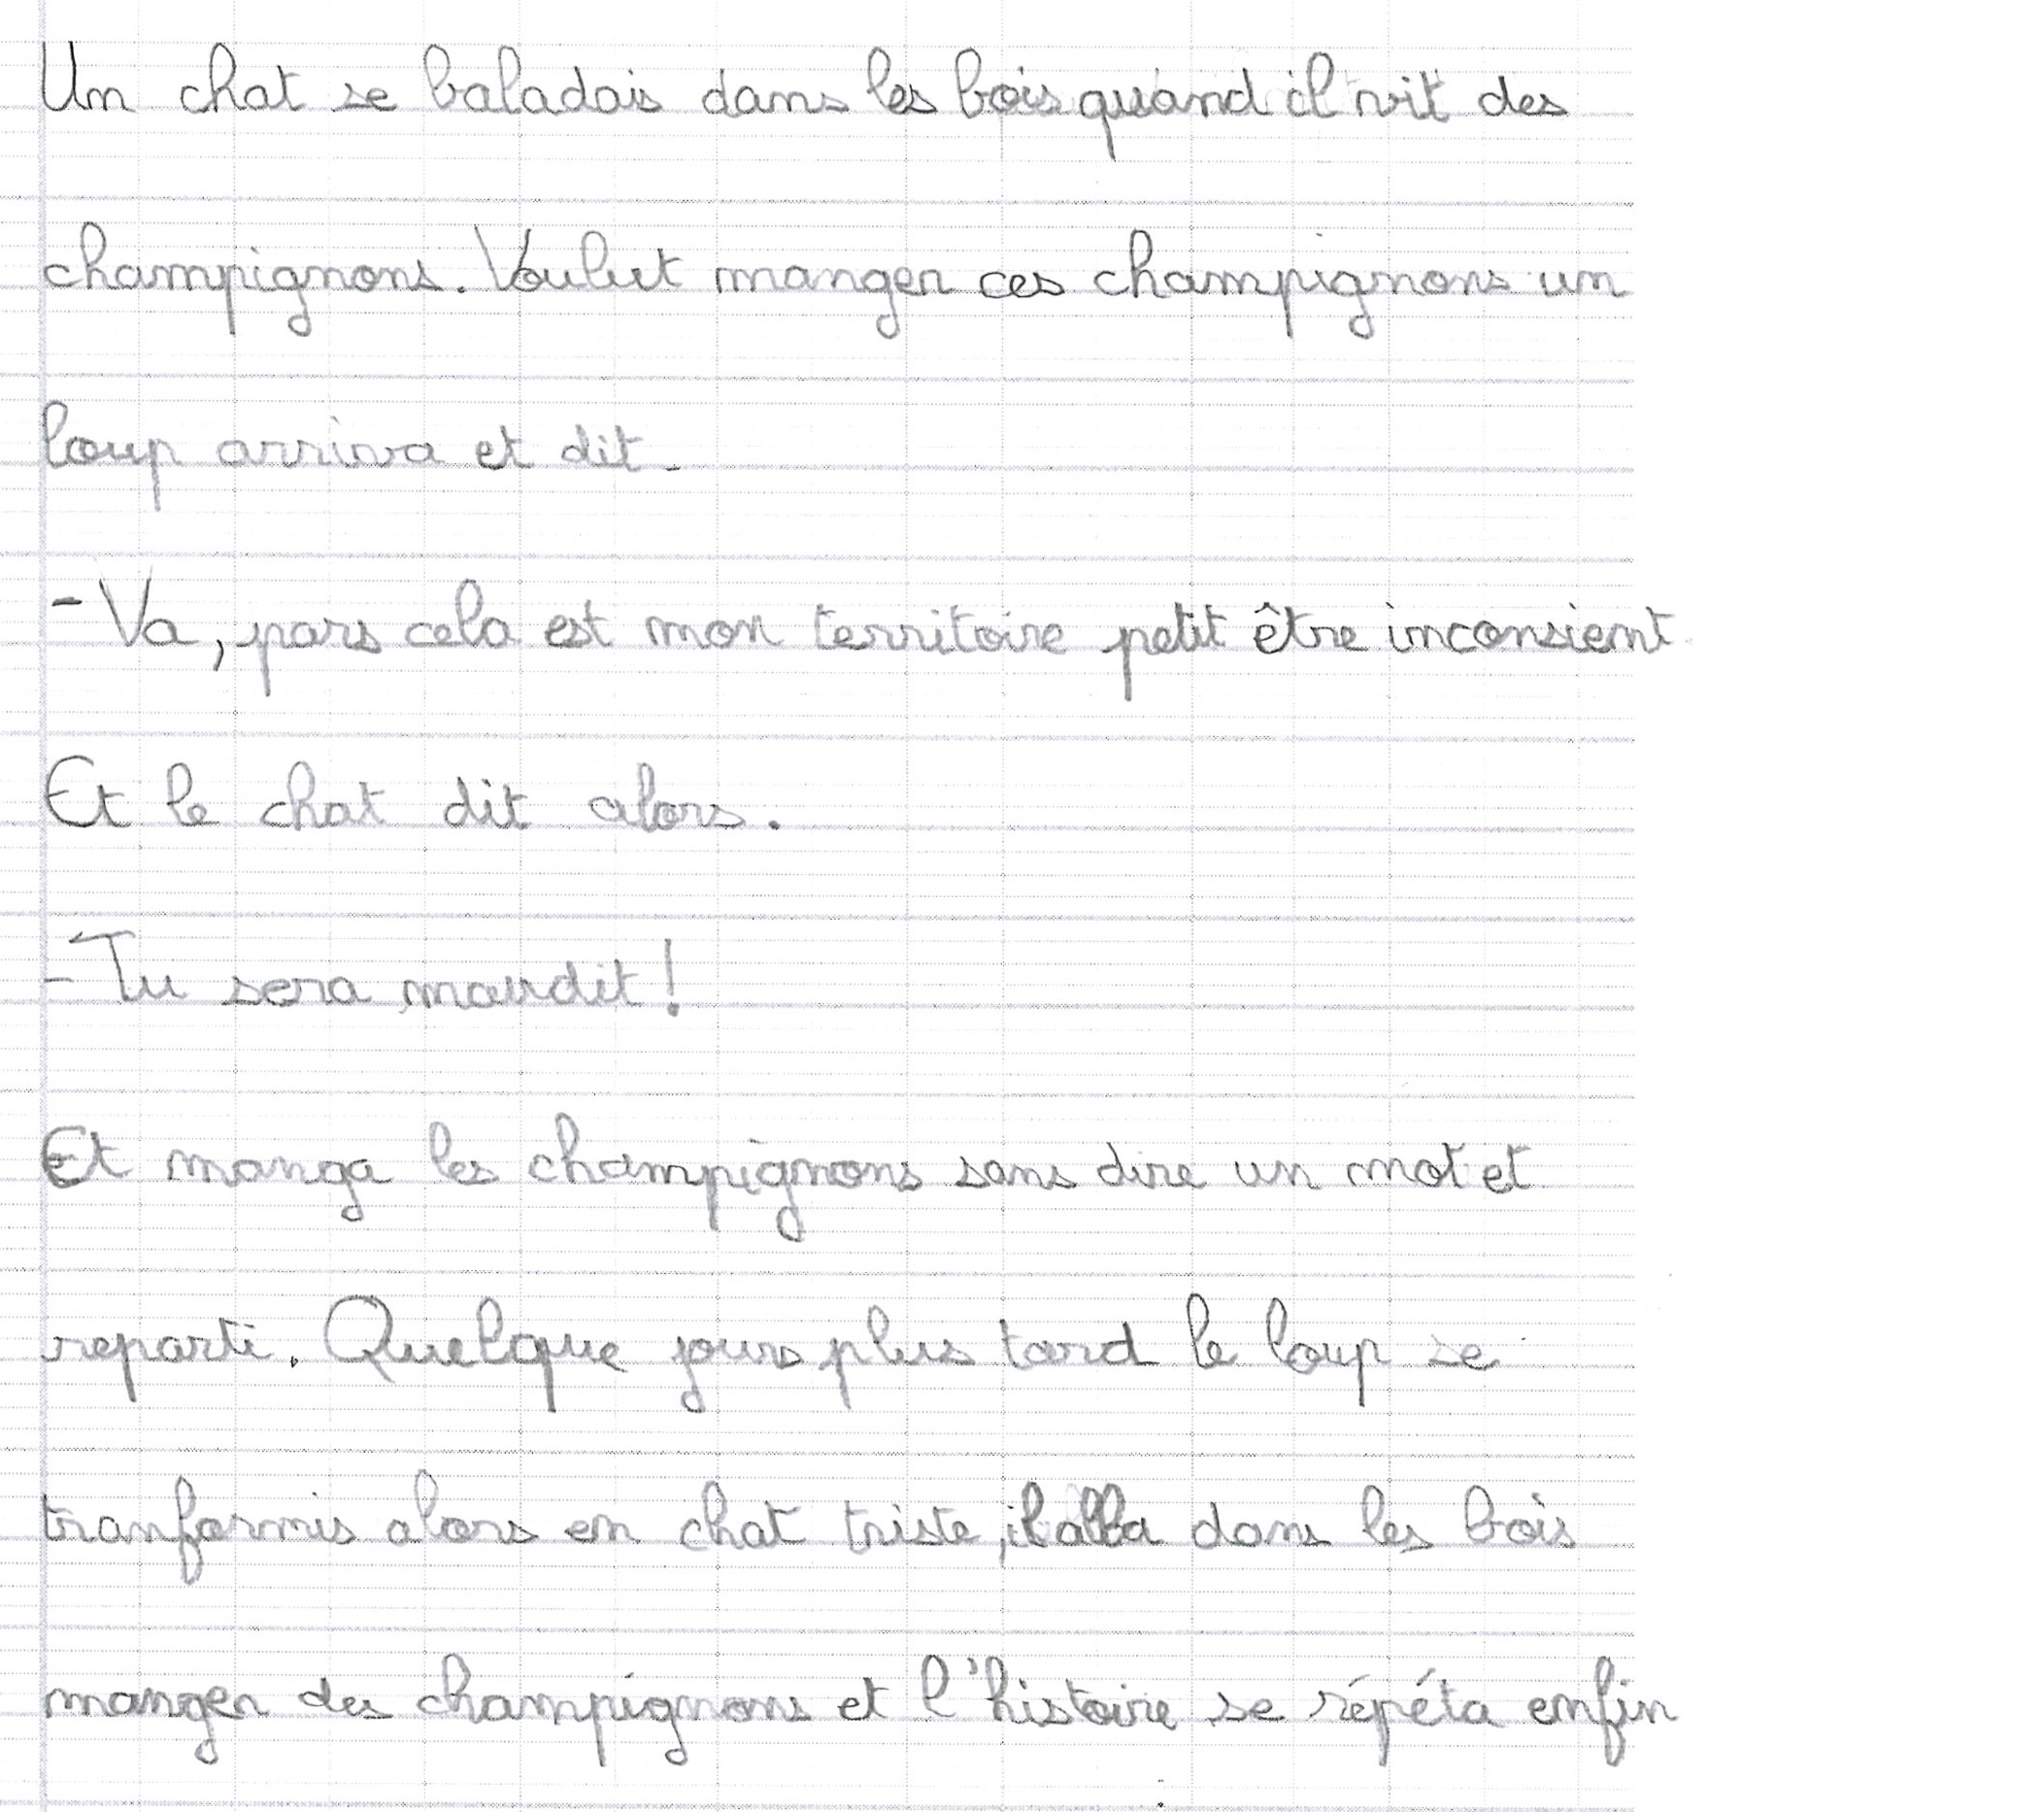 Un chat se baladais dans les bois quand il vit des
champignons. Voulut manger ces champignons un
loup arriva et dit.
- Va, pars cela est mon territoire petit être inconsient
Et le chat dit alors.
- Tu sera maudit !
Et manga les champignons sans dire un mot et
reparti. Quelque jours plus tard le loup se
tranformis alors en chat triste, il alla dans les bois
manger des champignons et l'histoire se répéta enfin